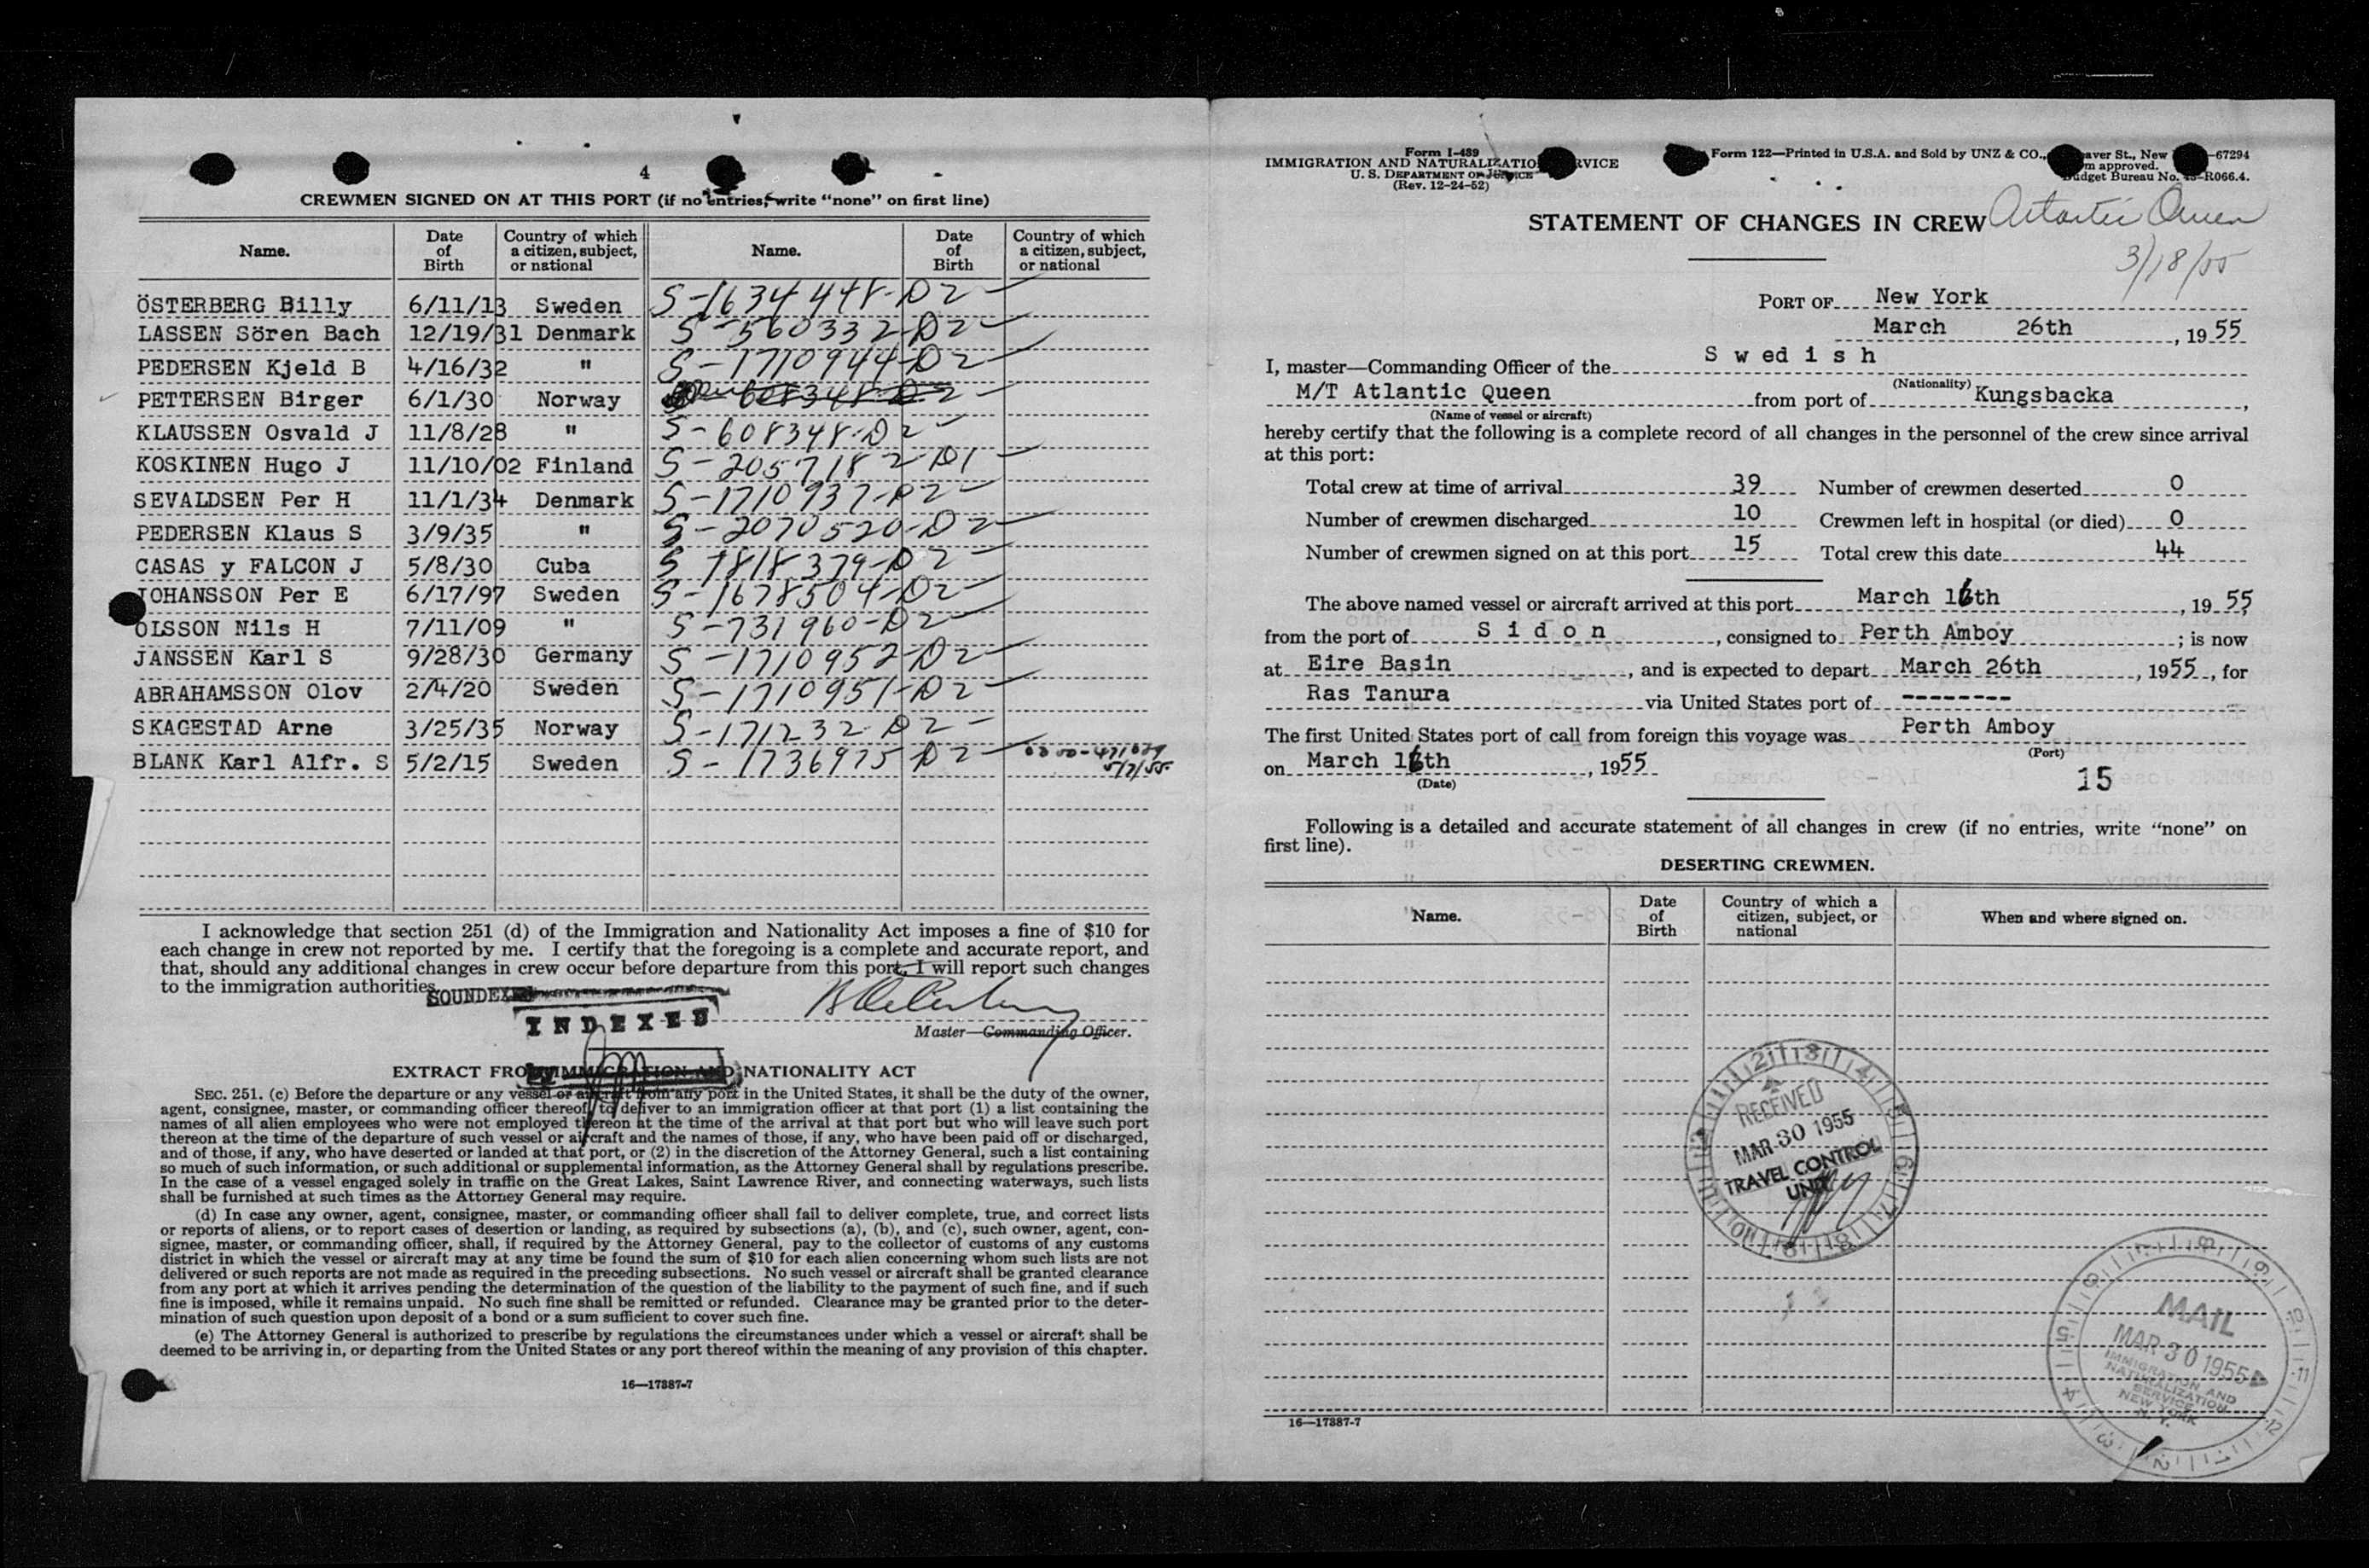 4
CREWMEN SIGNED ON AT THIS PORT (if no entries, write "none" on first line)
Name. Date of Birth Country of which a citizen, subject, or national Name. Date of Birth Country of which a citizen, subject, or national
ÖSTERBERG Billy 6/11/13 Sweden S-1634448-D2
LASSEN Sören Bach 12/19/31 Denmark S-560332-D2
PEDERSEN Kjeld B 4/16/32 " S-1710944-D2
PETTERSEN Birger 6/1/30 Norway 608348-D2
KLAUSSEN Osvald J 11/8/28 " S-608348-D2
KOSKINEN Hugo J 11/10/02 Finland S-2057182-D1
SEVALDSEN Per H 11/1/34 Denmark S-1710937-D2
PEDERSEN Klaus S 3/9/35 " S-2070520-D2
CASAS y FALCON J 5/8/30 Cuba S-1818379-D2
JOHANSSON Per E 6/17/97 Sweden S-1678504-D2
OLSSON Nils H 7/11/09 " S-731960-D2
JANSSEN Karl S 9/28/30 Germany S-1710952-D2
ABRAHAMSSON Olov 2/4/20 Sweden S-1710951-D2
SKAGESTAD Arne 3/25/35 Norway S-171232-D2
BLANK Karl Alfr. S 5/2/15 Sweden S-1736975-D2
I acknowledge that section 251 (d) of the Immigration and Nationality Act imposes a fine of $10 for
each change in crew not reported by me. I certify that the foregoing is a complete and accurate report, and
that, should any additional changes in crew occur before departure from this port, I will report such changes
to the immigration authorities.
SOUNDEXED
INDEXED
Master—Commanding Officer.
EXTRACT FROM IMMIGRATION AND NATIONALITY ACT
SEC. 251. (c) Before the departure or any vessel or aircraft from any port in the United States, it shall be the duty of the owner,
agent, consignee, master, or commanding officer thereof to deliver to an immigration officer at that port (1) a list containing the
names of all alien employees who were not employed thereon at the time of the arrival at that port but who will leave such port
thereon at the time of the departure of such vessel or aircraft and the names of those, if any, who have been paid off or discharged,
and of those, if any, who have deserted or landed at that port, or (2) in the discretion of the Attorney General, such a list containing
so much of such information, or such additional or supplemental information, as the Attorney General shall by regulations prescribe.
In the case of a vessel engaged solely in traffic on the Great Lakes, Saint Lawrence River, and connecting waterways, such lists
shall be furnished at such times as the Attorney General may require.
(d) In case any owner, agent, consignee, master, or commanding officer shall fail to deliver complete, true, and correct lists
or reports of aliens, or to report cases of desertion or landing, as required by subsections (a), (b), and (c), such owner, agent, con-
signee, master, or commanding officer, shall, if required by the Attorney General, pay to the collector of customs of any customs
district in which the vessel or aircraft may at any time be found the sum of $10 for each alien concerning whom such lists are not
delivered or such reports are not made as required in the preceding subsections. No such vessel or aircraft shall be granted clearance
from any port at which it arrives pending the determination of the question of the liability to the payment of such fine, and if such
fine is imposed, while it remains unpaid. No such fine shall be remitted or refunded. Clearance may be granted prior to the deter-
mination of such question upon deposit of a bond or a sum sufficient to cover such fine.
(e) The Attorney General is authorized to prescribe by regulations the circumstances under which a vessel or aircraft shall be
deemed to be arriving in, or departing from the United States or any port thereof within the meaning of any provision of this chapter.
16—17887-7
Form I-489
IMMIGRATION AND NATURALIZATION SERVICE
U. S. DEPARTMENT OF JUSTICE
(Rev. 12-24-52)
Form 122—Printed in U.S.A. and Sold by UNZ & CO., aver St., New -67294
m approved.
Budget Bureau No. 43-R066.4.
STATEMENT OF CHANGES IN CREW Atlantic Queen
3/18/55
PORT OF New York
March 26th, 1955
I, master—Commanding Officer of the Swedish
(Nationality)
M/T Atlantic Queen from port of Kungsbacka,
(Name of vessel or aircraft)
hereby certify that the following is a complete record of all changes in the personnel of the crew since arrival
at this port:
Total crew at time of arrival 39 Number of crewmen deserted 0
Number of crewmen discharged 10 Crewmen left in hospital (or died) 0
Number of crewmen signed on at this port 15 Total crew this date 44
The above named vessel or aircraft arrived at this port March 16th, 1955,
from the port of Sidon, consigned to Perth Amboy; is now
at Eire Basin, and is expected to depart March 26th, 1955, for
Ras Tanura via United States port of --------
The first United States port of call from foreign this voyage was Perth Amboy
(Port)
on March 16th, 1955
(Date)
15
Following is a detailed and accurate statement of all changes in crew (if no entries, write "none" on
first line).
DESERTING CREWMEN.
Name. Date of Birth Country of which a citizen, subject, or national When and where signed on.
RECEIVED
MAR 30 1955
TRAVEL CONTROL
UNIT
MAIL
MAR 30 1955
IMMIGRATION AND
NATURALIZATION
SERVICE
NEW YORK
N. Y.
16—17887-7